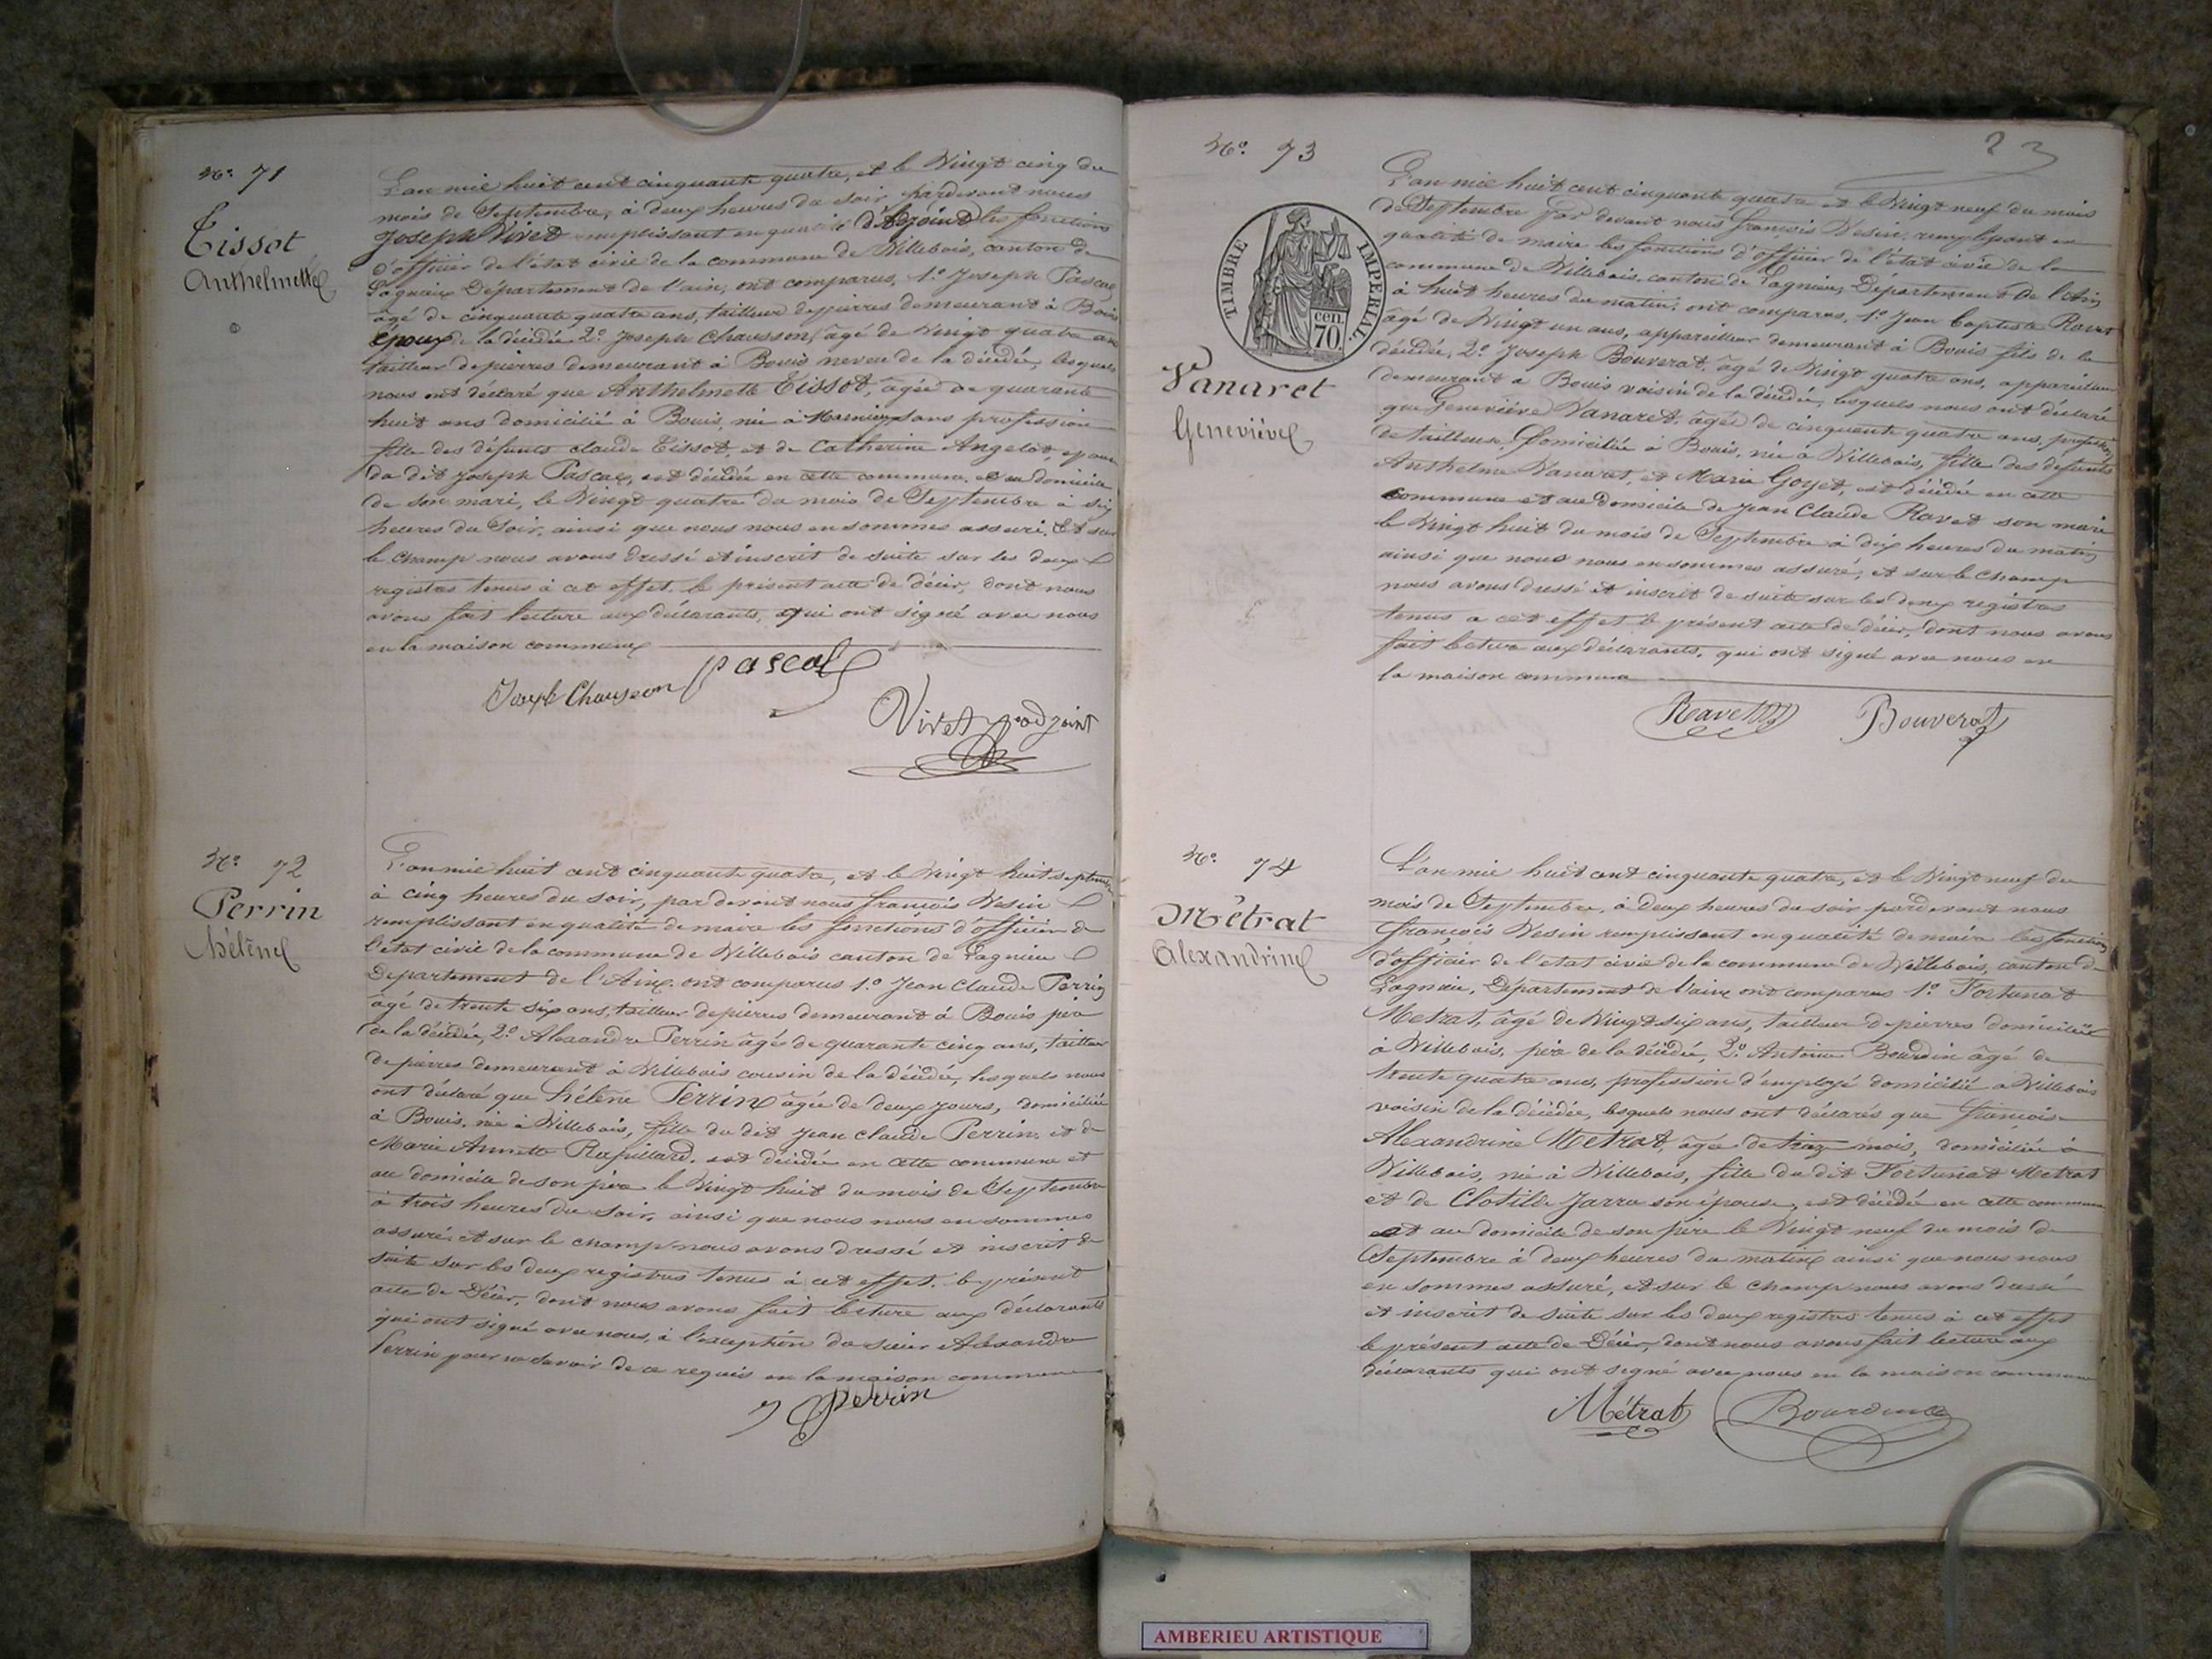 No. 71
Tissot
Anthelmette
L'an mil huit cent cinquante quatre, et le Vingt cinq du
mois de Septembre, à deux heures du soir, pardevant nous
Joseph Vivet remplissant en qualité d'Adjoint les fonctions
d'officier de l'état civil de la commune de Villebois, canton de
Lagnieu Département de l'ain, ont comparus, 1.o Joseph Pascal
âgé de cinquante quatre ans, tailleur de pierres demeurant à Bouis
époux de la décédée 2.o Joseph Chausson, âgé de Vingt quatre ans
tailleur de pierres demeurant à Bouis neveu de la décédée, lesquels
nous ont déclaré que Anthelmette Tissot, âgée de quarante
huit ans domicilié à Bouis, née à sans profession
fille des défunts claude Tissot, et de Catherine Angelot, épouse
du dit Joseph Pascal, est décédée en cette commune et au domicile
de son mari, le Vingt quatre du mois de Septembre à six
heures du Soir, ainsi que nous nous en sommes assuré. Et sur
le champ nous avons dressé et inscrit de suite sur les deux
registres tenus à cet effet le présent acte de décès, dont nous
avons fait lecture aux déclarants, qui ont signé avec nous
en la maison commune
Joseph Chausson pascal
Vivet adjoint
No. 72
Perrin
hélène
L'an mil huit cent cinquante quatre, et le Vingt huit septembre
à cinq heures du soir, par devant nous françois Vesin
remplissant en qualité de maire les fonctions d'officier de
l'état civil de la commune de Villebois canton de Lagnieu
Département de l'Ain, ont comparus 1.o Jean Claude Perrin
âgé de trente six ans, tailleur de pierres demeurant à Bouis père
de la décédée, 2.o Alexandre Perrin âgé de quarante cinq ans, tailleur
de pierres demeurant à Villebois cousin de la décédée, lesquels nous
ont déclaré que hélène Perrin âgée de deux jours, domiciliée
à Bouis, née à Villebois, fille du dit Jean claude Perrin, et de
Marie Annette Rapillard, est décédée en cette commune et
au domicile de son père le Vingt huit du mois de Septembre
à trois heures du Soir, ainsi que nous nous en sommes
assuré, et sur le champ nous avons dressé et inscrit de
suite sur les deux registres tenus à cet effet, le présent
acte de Décès, dont nous avons fait lecture aux déclarants
qui ont signé avec nous, à l'exception du sieur Alexandre
Perrin pour ne savoir de ce requis en la maison commune
J C perrin
23
No. 73
TIMBRE IMPERIAL
cen.
70.
Vanaret
Geneviève
L'an mil huit cent cinquante quatre et le Vingt neuf du mois
de Septembre par devant nous françois Vesin, remplissant en
qualité de maire les fonctions d'officier de l'état civil de la
commune de Villebois, canton de Lagnieu, Département de l'Ain
à huit heures du matin, ont comparus, 1.o Jean baptiste Ravet
âgé de Vingt un ans, appareilleur demeurant à Bouis fils de la
décédée, 2.o Joseph Bouverat, âgé de Vingt quatre ans, appareilleur
demeurant à Bouis voisin de la décédée, lesquels nous ont déclaré
que Geneviève Vanaret, âgée de cinquante quatre ans, profession
de tailleuse, Domiciliée à Bouis, née à Villebois, fille des défunts
Anthelme Vanaret, et Marie Goyet, est décédée en cette
commune et au domicile de Jean Claude Ravet son mari
le Vingt huit du mois de Septembre à dix heures du matin
ainsi que nous nous en sommes assuré, et sur le champ
nous avons dressé et inscrit de suite sur les deux registres
tenus a cet effet le présent acte de décès, dont nous avons
fait lecture aux déclarants, qui ont signé avec nous en
la maison commune
Ravet Bouverat
No. 74
Métrat
Alexandrine
L'an mil huit cent cinquante quatre, et le Vingt neuf du
mois de Septembre, à deux heures du soir pardevant nous
françois Vesin remplissant en qualité de maire les fonctions
d'officier de l'état civil de la commune de Villebois, canton de
Lagnieu, Département de l'ain, ont comparus 1.o Fortunat
Metrat, âgé de Vingt six ans, tailleur de pierres domicilié
à Villebois, père de la décédée, 2.o Antoine Bourdin âgé de
trente quatre ans, profession d'employé domicilié a Villebois
voisin de la décédée, lesquels nous ont déclarés que françoise
Alexandrine Metrat, âgée de treize mois, domiciliée à
Villebois, née à Villebois, fille du dit Fortunat Metrat
et de Clotilde Jarru son épouse, est décédée en cette commune
et au domicile de son père le Vingt neuf du mois de
Septembre à deux heures du matin, ainsi que nous nous
en sommes assuré, et sur le champ nous avons dressé
et inscrit de suite sur les deux registres tenus à cet effet
le présent acte de Décès, dont nous avons fait lecture aux
déclarants qui ont signé avec nous en la maison commune
Métrat Bourdin
AMBERIEU ARTISTIQUE